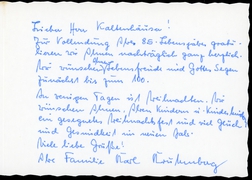 Lieber Herr Kaltenhäuser!
Zur Vollendung Ihres 85. Lebensjahres gratu-
lieren wir Ihnen nachträglich ganz herzlich.
Wir wünschen Ihnen Lebensfreude und Gottes Segen
zunächst bis zum 100.
In wenigen Tagen ist Weihnachten. Wir
wünschen Ihnen, Ihren Kindern u. Kindeskindern
ein gesegnetes Weihnachtsfest und viel Glück
und Gesundheit im neuen Jahr.
Viele liebe Grüße!
Ihre Familie Karl